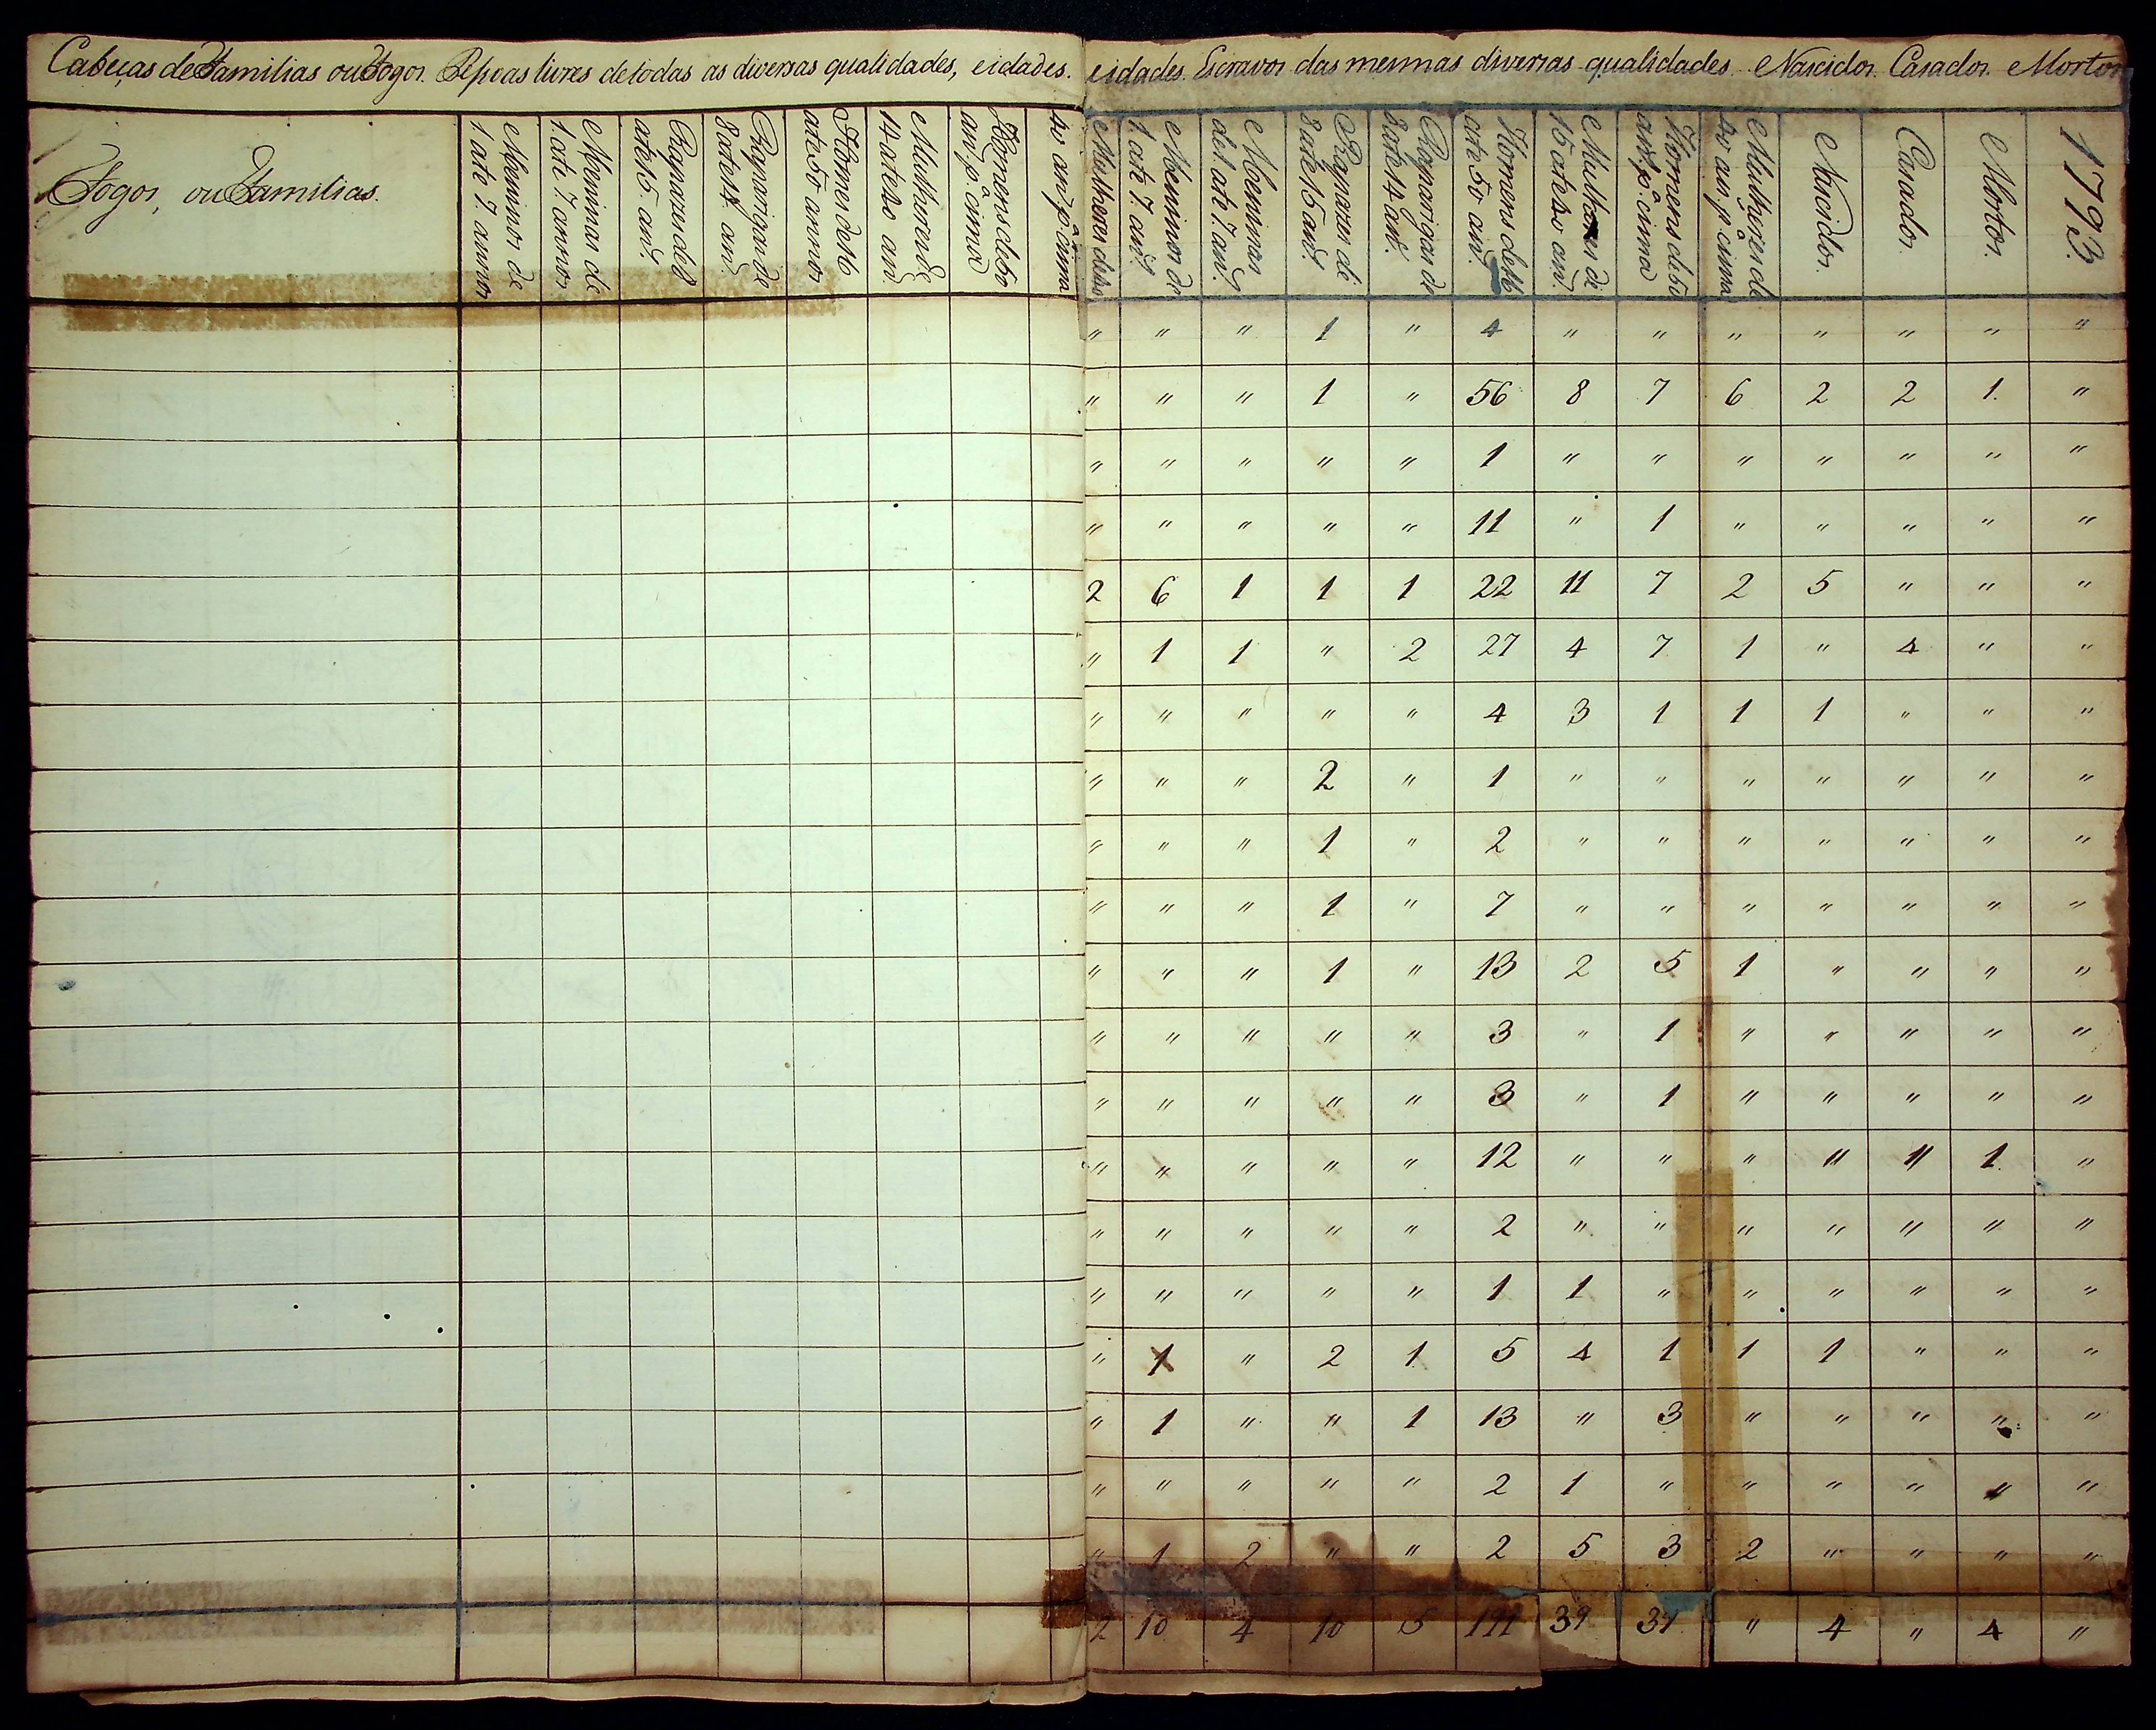 Cabeças de Familias ou Fogos. Pessoas livres de todas as diversas qualidades, e idades.
e idades. Escravos das mesmas diversas qualidades. Nascidos. Casados. Mortos
Fogos, ou Familias.
Meninos de
1. ate 7. annos
Meninas de
1. ate 7. annos
Rapazes de 8
ate 15. an.s
Raparigas de
8 ate 14 an.s
Homes de 16
ate 50 annos
Mulheres de
14 ate 40 an.s
Homens de 50
an.s p.a cima
40 an.s p.a cima
Mulheres de 40
Meninos de
1. ate 7. an.s
Meninas
de 1. ate 7. an.s
Rapazes de
8 ate 15 an.s
Raparigas de
8 ate 14 an.s
Homens de 16
ate 50 an.s
Mulheres de
15 ate 40 an.s
Homens de 50
an.s p.a cima
Mulheres de
40 an.s p.a cima
Nacidos.
Casados.
Mortos.
1793.
" " " 1 " 4 " " " " " " "
" " " 1 " 56 8 7 6 2 2 1. "
" " " " " 1 " " " " " " "
" " " " " 11 " 1 " " " " "
2 6 1 1 1 22 11 7 2 5 " " "
" 1 1 " 2 27 4 7 1 " 4 " "
" " " " " 4 3 1 1 1 " " "
" " " 2 " 1 " " " " " " "
" " " 1 " 2 " " " " " " "
" " " 1 " 7 " " " " " " "
" " " 1 " 13 2 5 1 " " " "
" " " " " 3 " 1 " " " " "
" " " " " 3 " 1 " " " " "
" " " " " 12 " " " " " 1. "
" " " " " 2 " " " " " " "
" " " " " 1 1 " " " " " "
" 1 " 2 1 5 4 1 1 1 " " "
" 1 " " 1 13 " 3 " " " " "
" " " " " 2 1 " " " " " "
" 1 2 " " 2 5 3 2 " " " "
2 10 4 10 5 191 39 37 " 4 " 4 "